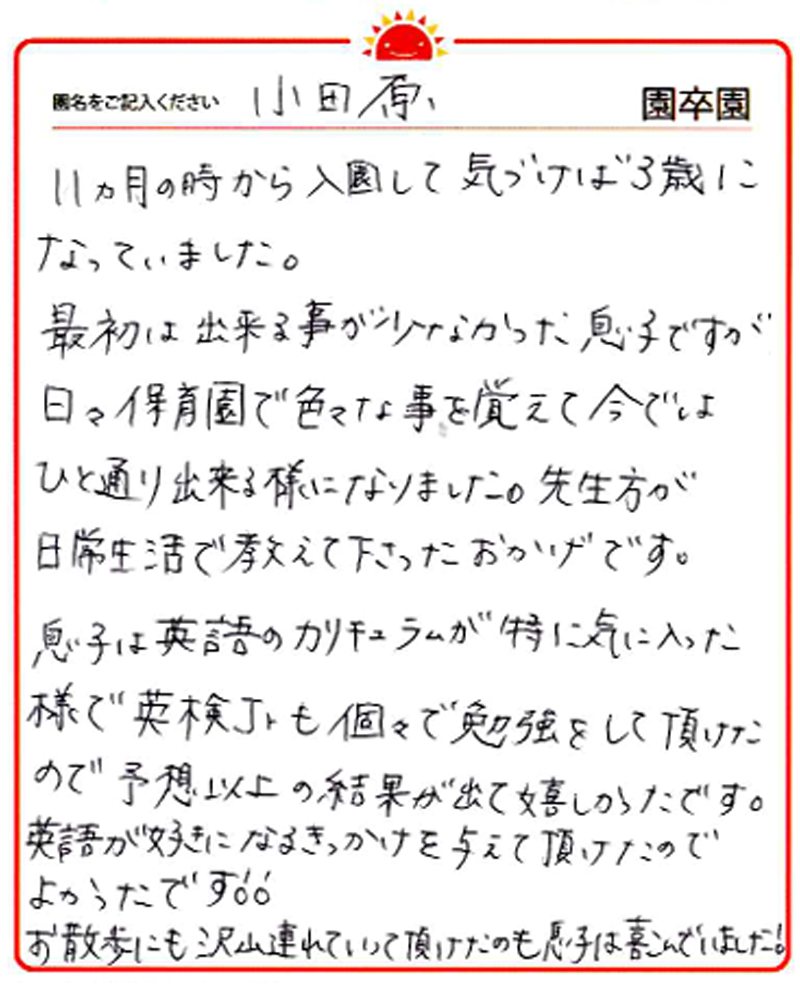 園名をご記入ください 小田原 園卒園
11ヵ月の時から入園して気づけば3歳に
なっていました。
最初は出来る事が少なかった息子ですが
日々保育園で色々な事を覚えて今では
ひと通り出来る様になりました。先生方が
日常生活で教えて下さったおかげです。
息子は英語のカリキュラムが特に気に入った
様で英検Jrも個々で勉強をして頂けた
ので予想以上の結果が出て嬉しかったです。
英語が好きになるきっかけを与えて頂けたので
よかったです!!
お散歩にも沢山連れていって頂けたのも息子は喜こんでいました!